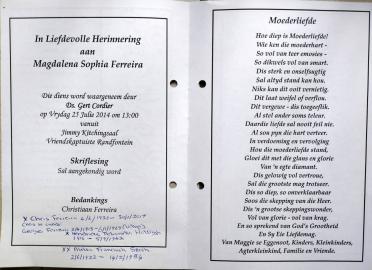 In Liefdevolle Herinnering
aan
Magdalena Sophia Ferreira
Die diens word waargeneem deur
Ds. Gert Cordier
op Vrydag 25 Julie 2014 om 13:00
vanuit
Jimmy Kitchingsaal
Vriendskaptuiste Randfontein
Skriflesing
Sal aangekondig word
Bedankings
Christiaan Ferreira
x Chris Ferreira
George Ferreira
Moederliefde
Hoe diep is Moederliefde!
Wie ken die moederhart -
So vol van teer emosies -
So dikwels vol van smart.
Dis sterk en onselfsugtig
Sal altyd stand kan hou.
Niks kan dit ooit vernietig.
Dit laat weifel of verflou.
Dit vergewe - dis toegeeflik.
Al stel ander soms teleur.
Daardie liefde sal nooit feil nie.
Al sou pyn die hart verteer.
In verdoeming en vervolging
Hou die moederliefde stand,
Gloei dit met die glans en glorie
Van 'n egte diamant.
Dis gelowig vol vertroue,
Sal die grootste mag trotseer.
Dis so diep, so onverklaarbaar
Soos die skepping van die Heer.
Dis 'n grootse skeppingswonder,
Vol van glorie - vol van krag.
En so sprekend van God's Grootheid
En Sy Eie Liefdemag.
Van Maggie se Eggenoot, Kinders, Kleinkinders,
Agterkleinkind, Familie en Vriende.